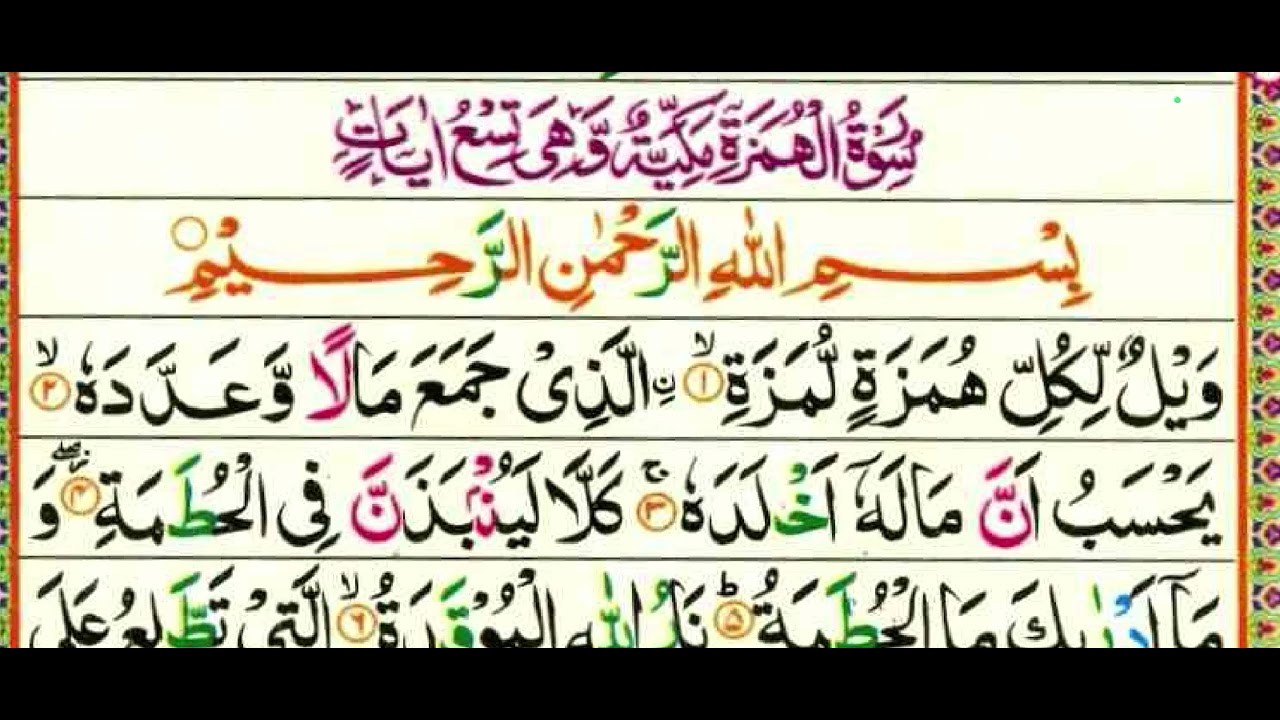 سُوْرَةُ الْهُمَزَةِ مَكِّيَّةٌ وَّهِىَ تِسْعُ اٰيَاتٍ
بِسْمِ اللهِ الرَّحْمٰنِ الرَّحِيْمِ ○
وَيْلٌ لِّكُلِّ هُمَزَةٍ لُّمَزَةِ ۙ﴿۱﴾ ۨ الَّذِىْ جَمَعَ مَالًا وَّعَدَّدَهٗ ۙ﴿۲﴾
يَحْسَبُ اَنَّ مَالَهٗۤ اَخْلَدَهٗ ۚ﴿۳﴾ كَلَّا لَيُنْۢبَذَنَّ فِى الْحُطَمَةِ ۖ﴿۴﴾ وَ
مَاۤ اَدْرٰىكَ مَا الْحُطَمَةُ ؕ﴿۵﴾ نَارُ اللّٰهِ الْمُوْقَدَةُ ۙ﴿۶﴾ الَّتِىْ تَطَّلِعُ عَلَى